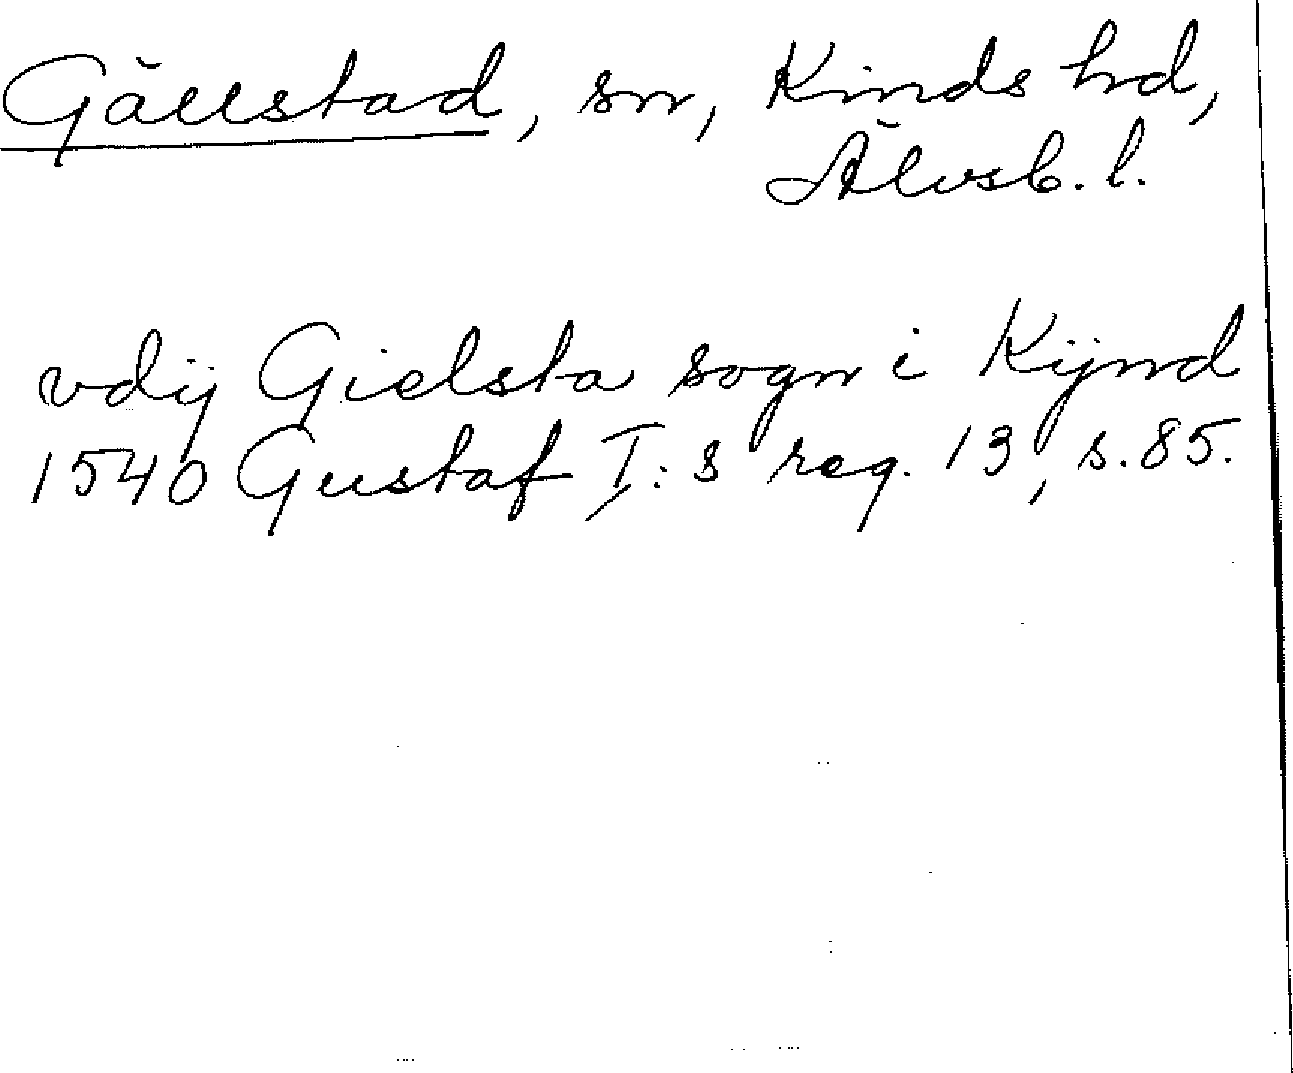 Gällstad, sn, Kinds hd,
Älvsb. l.
vdij Gielsta sogn i Kijnd
1540 Gustaf I:s reg. 13, s. 85.